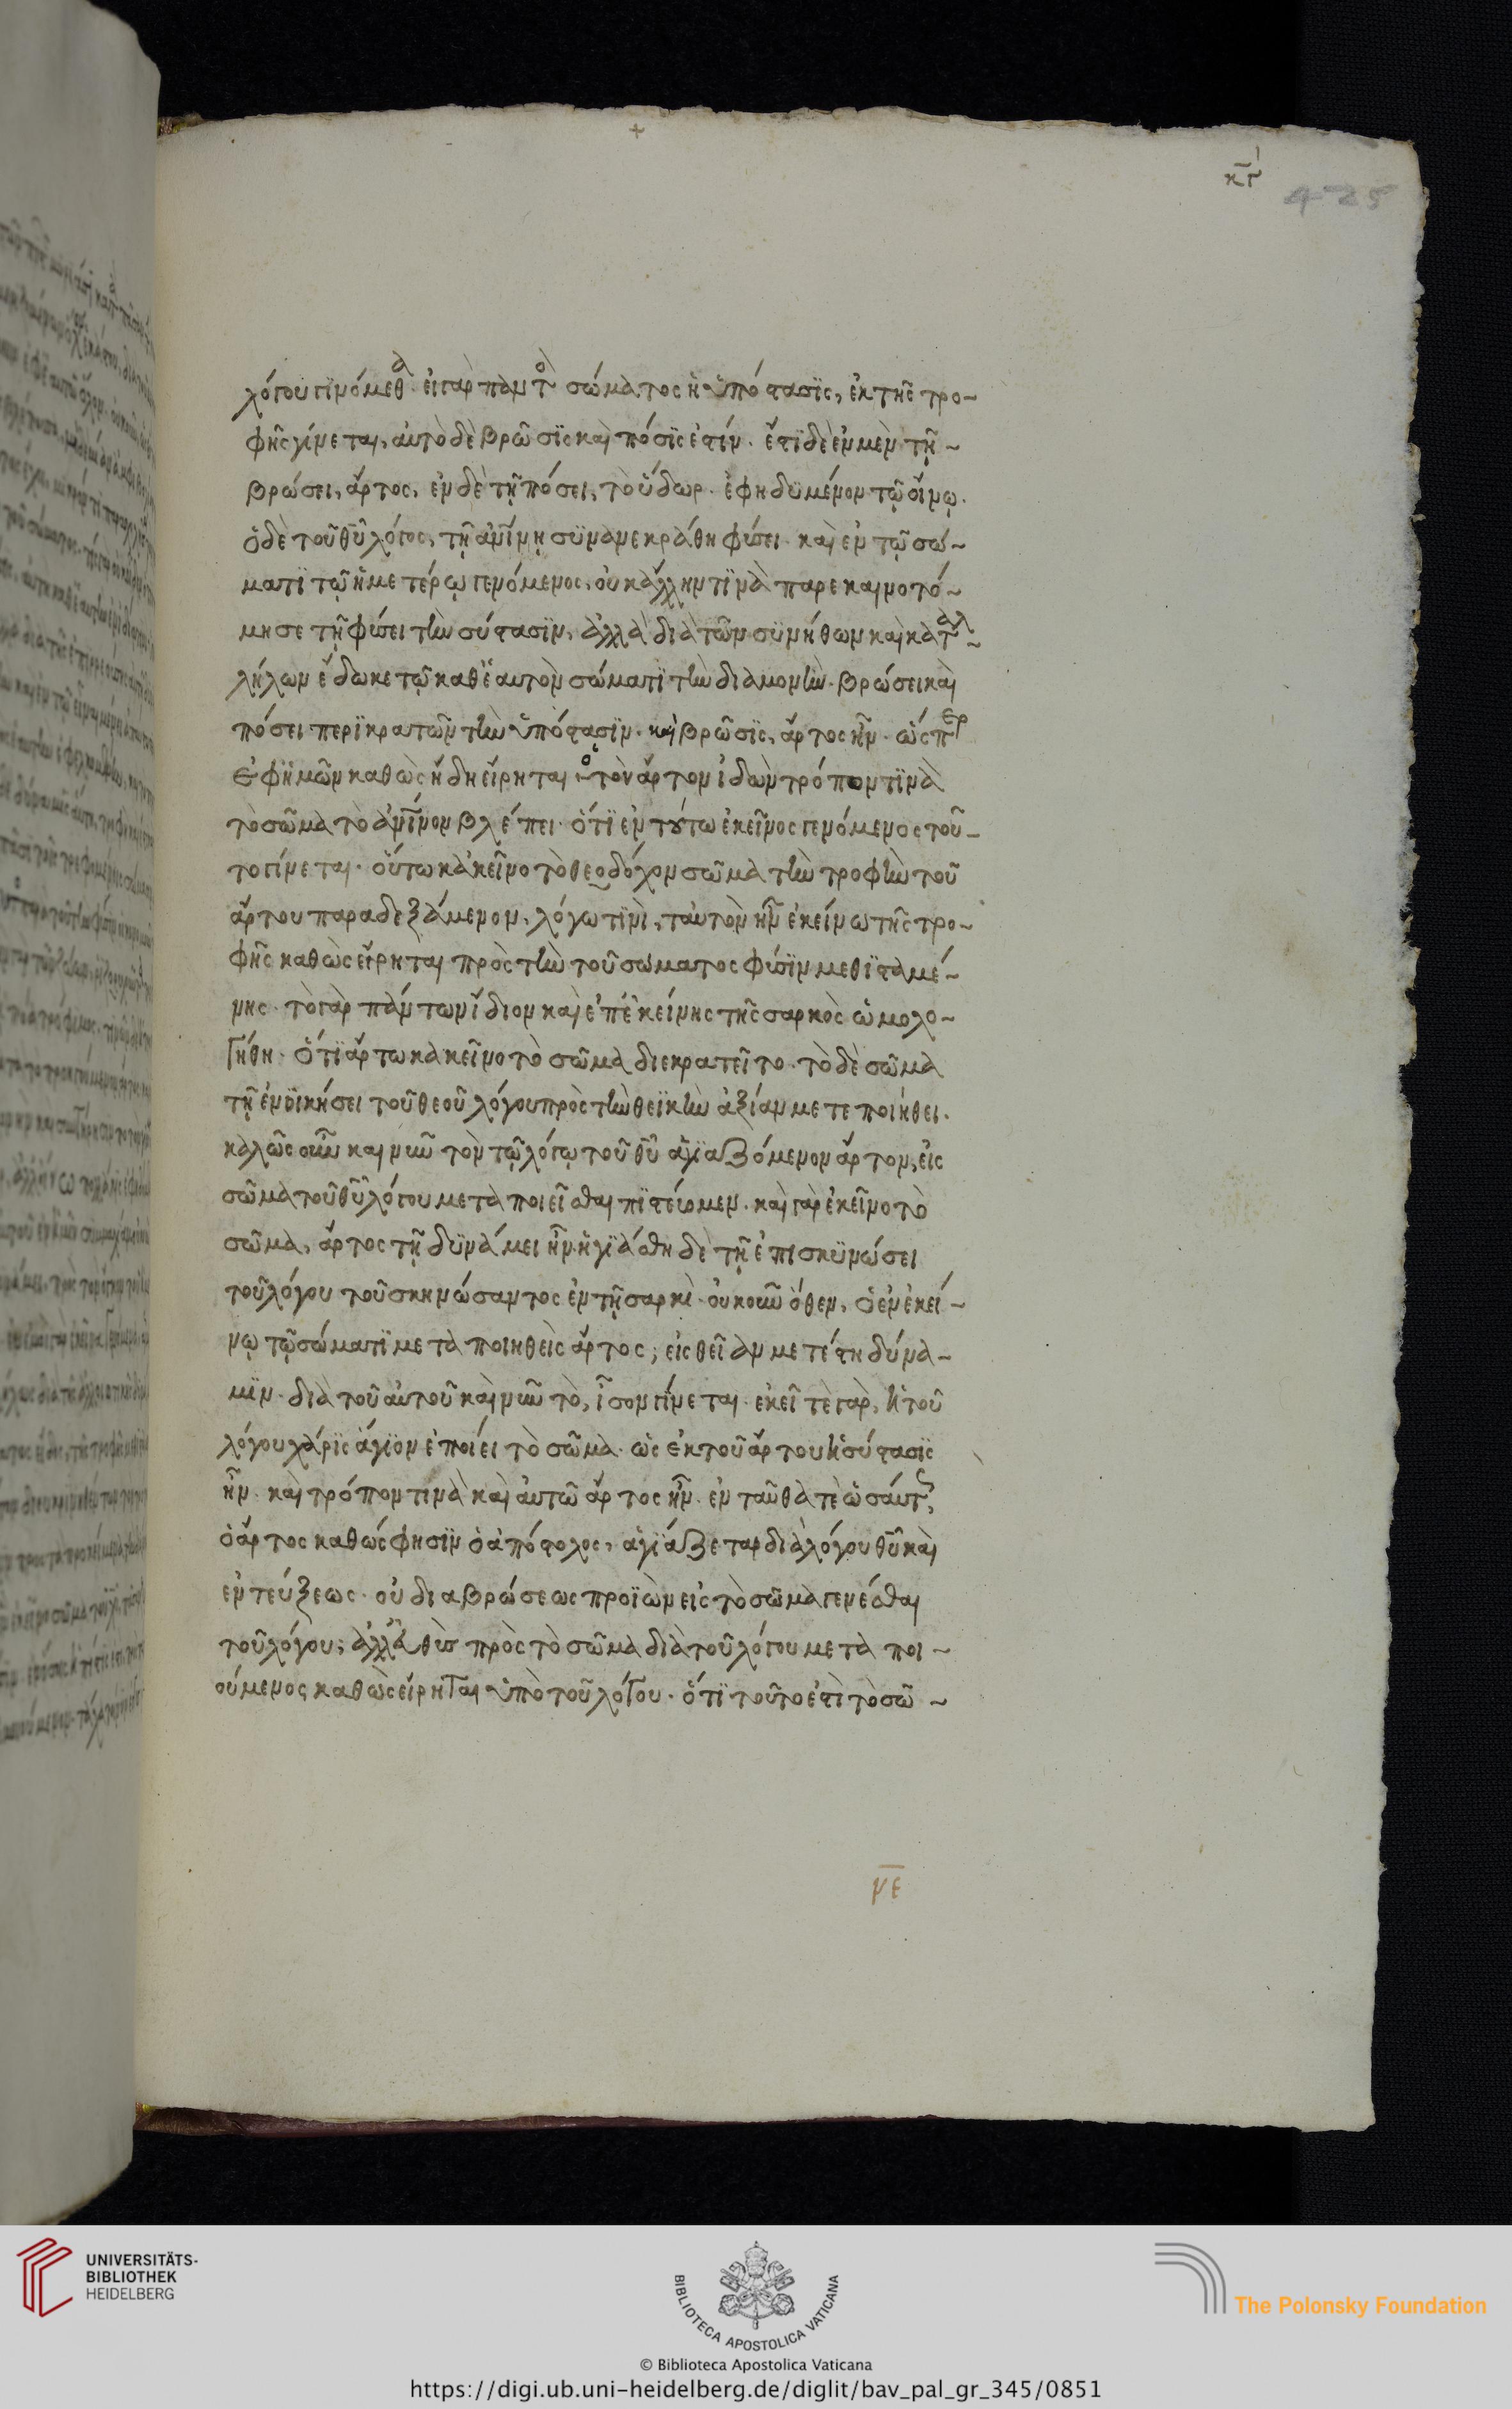 κγ
425
λόγου γινόμεθα. εἰ γὰρ παντὸ σώματος ἡ ὑπόστασϊς, ἐκ τῆς τρο-
φῆς γίνεται, αὐτὸ δὲ βρῶσϊς καὶ πόσϊς ἐστίν. ἔστϊ δὲ ἐν μὲν τῇ ~
βρώσει, ἄρτος, ἐν δὲ τῇ πόσει, τὸ ὕδωρ. ἐφηδϋμένον τῷ οἴνῳ.
ὁ δὲ τοῦ θῦ λόγος, τῇ ἀνίνῃ σϋνανεκράθη φύσει. καὶ ἐν τῷ σώ~
ματϊ τῷ ἡμετέρῳ γενόμενος, οὐκ ἄλλην τϊνὰ παρεκαινοτό~
μησε τῇ φύσει τὴν σύστασϊν, ἀλλὰ διὰ τῶν σϋνήθων καὶ καταλ~
λήλων ἔδωκε τῷ καθ' ἑαυτὸν σώματϊ τὴν διαμονὴν. βρώσει καὶ
πόσει περϊκρατῶν τὴν ὑπόστασϊν. καὶ βρῶσϊς, ἄρτος ἦν. ὥσπερ
ἐφ' ἡμῶν καθὼς ἤδη εἴρηται ὁ τὸν ἄρτον ἰδὼν τρόπον τϊνὰ
τὸ σῶμα τὸ ἀνίνον βλέπει. ὅτϊ ἐν τούτω ἐκεῖνος γενόμενος τοῦ-
το γίνεται. οὕτω κἀκεῖνο τὸ θεοδόχον σῶμα τὴν τροφὴν τοῦ
ἄρτου παραδεξάμενον, λόγω τϊνὶ, ταὐτὸν ἦν ἐκείνω τῆς τρο-
φῆς καθὼς εἴρηται πρὸς τὴν τοῦ σώματος φύσϊν μεθϊσταμέ~
νης. τὸ γὰρ πάντων ἴδιον καὶ ἐπ' ἐκείνης τῆς σαρκὸς ὡμολο~
γήθη. ὅτϊ ἄρτω κἀκεῖνο τὸ σῶμα διεκρατεῖτο. τὸ δὲ σῶμα
τῇ ἐνοϊκήσει τοῦ θεοῦ λόγου πρὸς τὴν θεϊκὴν ἀξίαν μετεποιήθει.
καλῶς οὖν καὶ νῦν τὸν τῷ λόγῳ τοῦ θῦ ἁγϊαζόμενον ἄρτον, εἰς
σῶμα τοῦ θῦ λόγου μεταποιεῖσθαι πϊστεύομεν. καὶ γὰρ ἐκεῖνο τὸ
σῶμα, ἄρτος τῇ δϋνάμει ἦν. ἡγϊάσθη δὲ τῇ ἐπισκϋνώσει
τοῦ λόγου τοῦ σκηνώσαντος ἐν τῇ σαρκὶ. οὐκοῦν ὅθεν, ὁ ἐν ἐκεί~
νῳ τῷ σώματϊ μεταποιηθεὶς ἄρτος, εἰς θεῖαν μετέστη δύνα~
μϊν. διὰ τοῦ αὐτοῦ καὶ νῦν τὸ, ἴσον γίνεται. ἐκεῖ τὲ γὰρ, ἡ τοῦ
λόγου χάρϊς ἅγϊον ἐποίει τὸ σῶμα. ὡς ἐκ τοῦ ἄρτου ἡ σύστασϊς
ἦν. καὶ τρόπον τινὰ καὶ αὐτῶ ἄρτος ἦν. ἐνταῦθα τὲ ὡσαύτως
ὁ ἄρτος καθώς φησϊν ὁ ἀπόστολος, ἁγϊάζεται διὰ λόγου θῦ καὶ
ἐντεύξεως. οὐ διαβρώσεως προϊὼν εἰς τὸ σῶμα γενέσθαι
τοῦ λόγου, ἀλλ' εὐθὺς πρὸς τὸ σῶμα διὰ τοῦ λόγου μεταποι~
ούμενος καθὼς εἴρηται ὑπὸ τοῦ λόγου. ὅτϊ τοῦτο ἐστὶ τὸ σῶ ~
νε
UNIVERSITÄTS-
BIBLIOTHEK
HEIDELBERG
BIBLIOTECA APOSTOLICA VATICANA
The Polonsky Foundation
© Biblioteca Apostolica Vaticana
https://digi.ub.uni-heidelberg.de/diglit/bav_pal_gr_345/0851